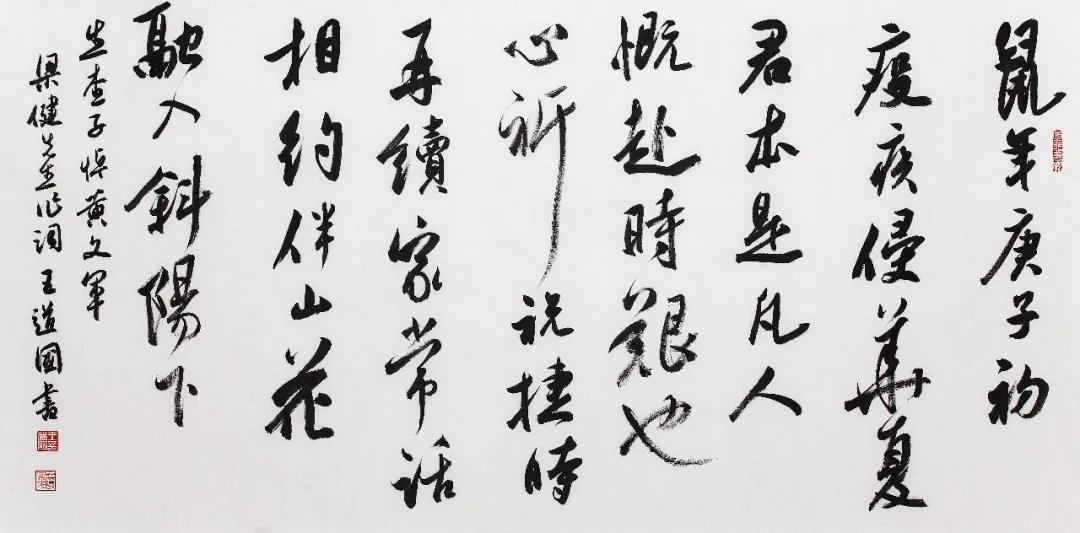 鼠年庚子初
疫疾侵華夏
君本是凡人
慨赴時艱也
心祈祝捷時
再續家常話
相約伴山花
融入斜陽下
生查子 悼黄文军
梁健先生作词 王道國書